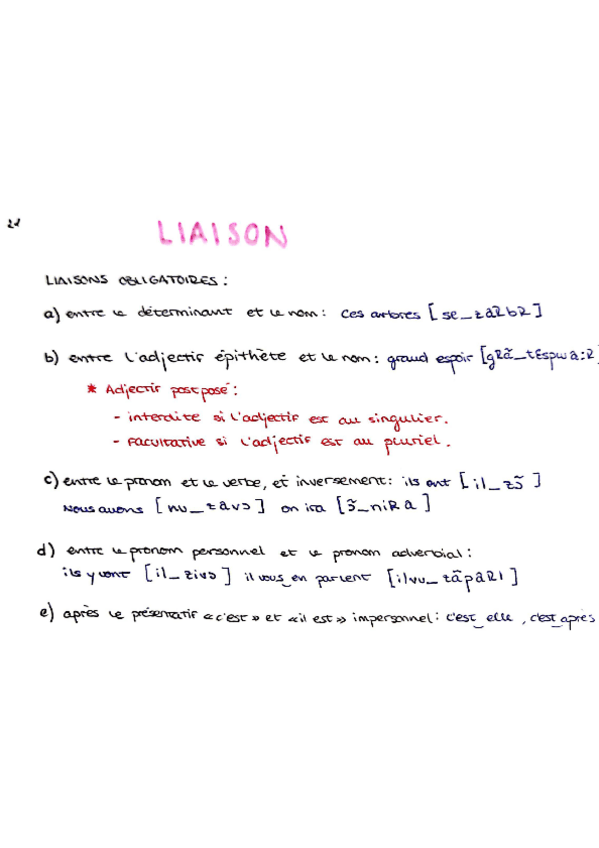 LIAISON
LIAISONS OBLIGATOIRES :
a) entre le déterminant et le nom : ces arbres [se_zaRbR]
b) entre l'adjectif épithète et le nom : grand espoir [gRã_tɛspwa:R]
* Adjectif postposé :
- interdite si l'adjectif est au singulier.
- facultative si l'adjectif est au pluriel.
c) entre le pronom et le verbe, et inversement : ils ont [il_zɔ̃]
Nous avons [nu_zavɔ̃] on ira [ɔ̃_niRa]
d) entre le pronom personnel et le pronom adverbial :
ils y vont [il_zivɔ] il vous‿en parlent [ilvu_zãpaRl]
e) après le présentatif «c'est» et «il est» impersonnel : c'est‿elle, c'est‿après